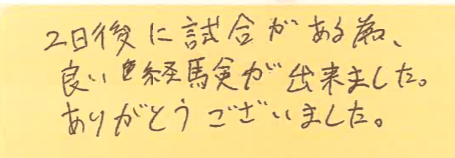 2日後に試合がある為、
良い経験が出来ました。
ありがとうございました。